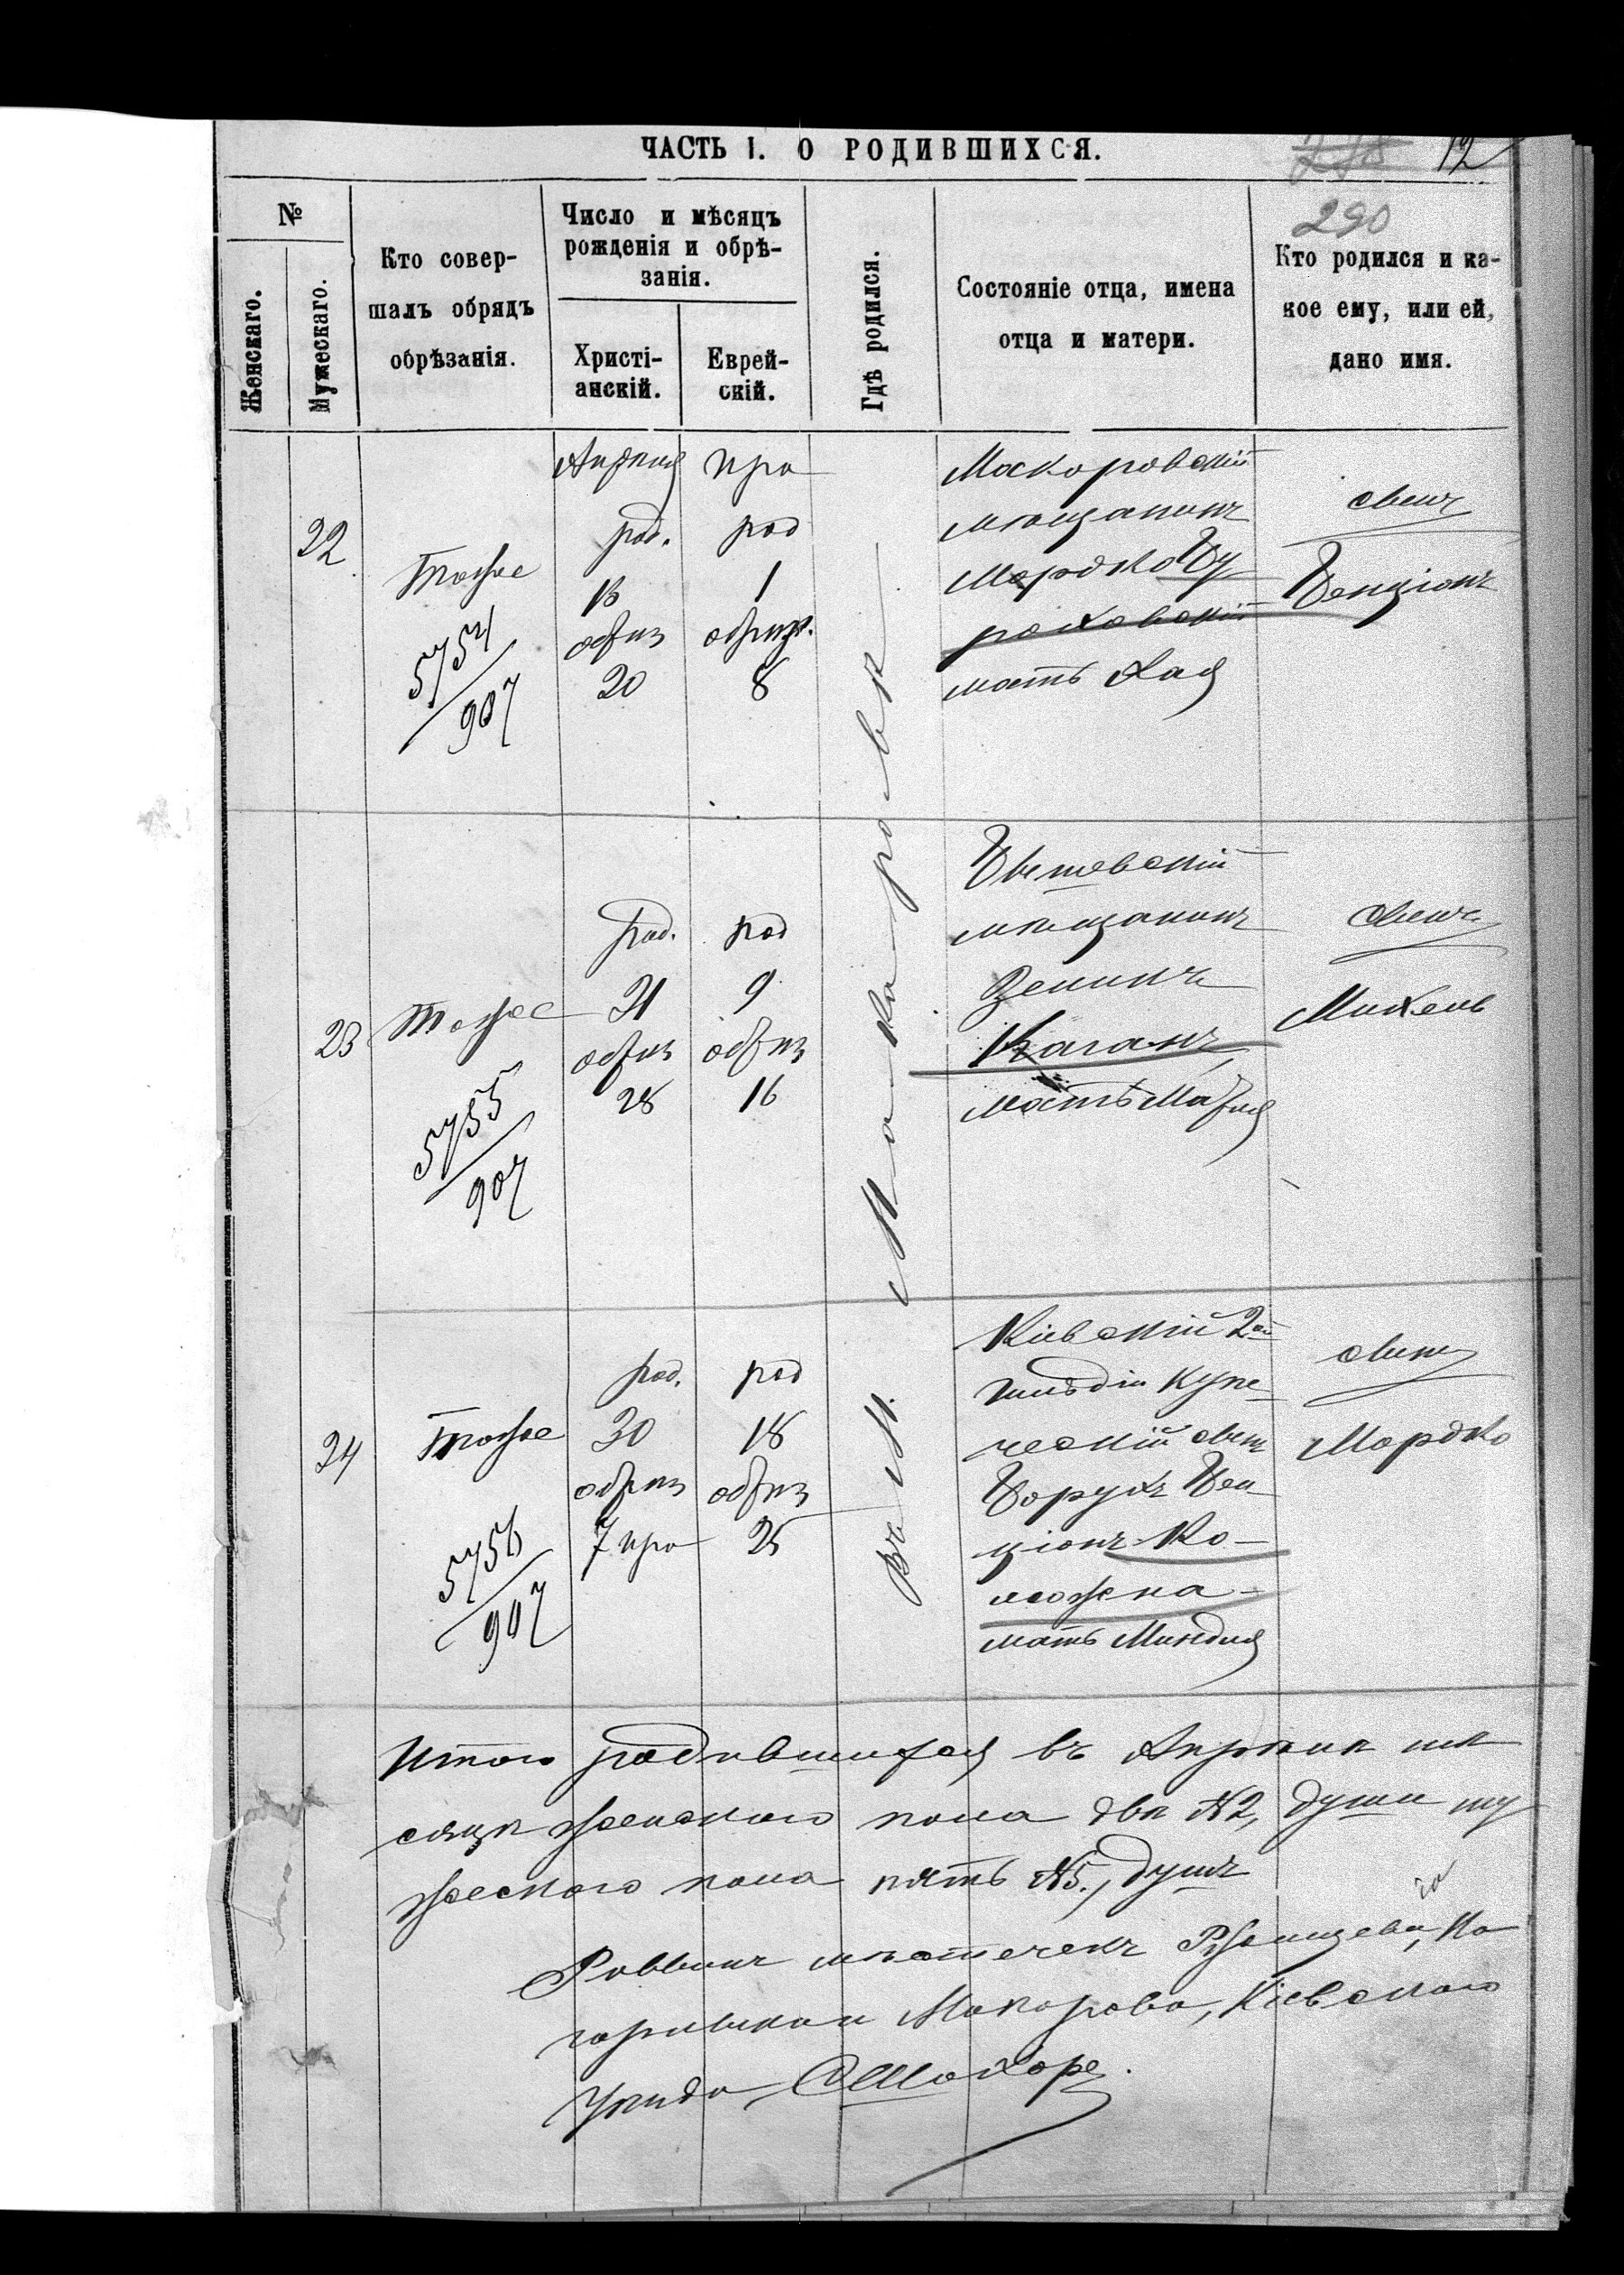 ЧАСТЬ I. О РОДИВШИХСЯ.
12
290
№
Женскаго.
Мужескаго.
Кто совер-
шалъ обрядъ
обрѣзанія.
Число и мѣсяцъ
рожденія и обрѣ-
занія.
Христі-
анскій.
Еврей-
скій.
Гдѣ родился.
Состояніе отца, имена
отца и матери.
Кто родился и ка-
кое ему, или ей,
дано имя.
22
Тоже
5754
907
Апрѣля
род.
обрѣз
20
Ира
род
1
обрѣз.
8
Въ М. Макаровѣ
Макаровскій
мѣщанинъ
Мордко Бу
раковскій
мать Хая
сынъ
Бенціонъ
23
Тоже
5755
907
род.
21
обрѣз
28
род
9
обрѣз
16
мѣщанинъ
Зеликъ
Каганъ
мать Маріа
сынъ
Михель
24
Тоже
5756
907
род.
30
обрѣз
7 ира
род
18
обрѣз
25
Кіевскій 2ой
гильдіи купе
ческій сынъ
Борухъ Бен
ціонъ Ко-
мать Миндля
сынъ
Мордко
Итого родившихся въ Апрѣлѣ мѣ
сяцѣ женскаго пола двѣ №2, души му
жескаго пола пять №5., душъ
Раввинъ мѣстечекъ Ржищева, Ка
гарлыка и Макарова, Кіевскаго
Уѣзда